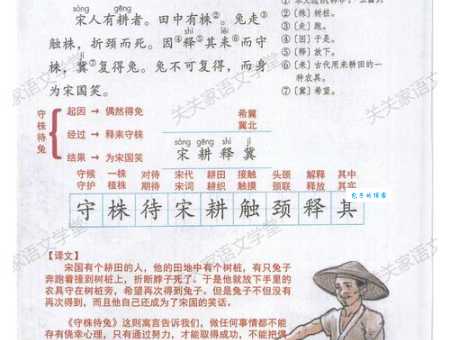 sòng gēng
宋人有耕者。田中有株②。兔走③
触株，折颈而死。因④释⑤其耒⑥而守
株，冀⑦复得兔。兔不可复得，而身
为宋国笑。
②[株]树桩。
③[走]跑。
④[因]于是。
⑤[释]放下。
⑥[耒]古代用来耕田的一
种农具。
⑦[冀]希望。
守株待兔
起因 → 偶然得兔
经过 → 释耒守株
结果 → 为宋国笑
希冀
冀北
sòng gēng shì jì
宋 耕 释 冀
守候 一株 对待 宋代 耕田 接触 头颈 解释 其中
守护 植株 期待 宋词 耕织 触摸 颈联 释放 其实
守 株 待 宋 耕 触 颈 释 其
【译文】
宋国有个耕田的人，他的田地中有个树桩，有只兔子
奔跑着撞到树桩上，折断脖子死了。于是他就放下手里的
农具守在树桩旁，希望再次得到兔子。但是兔子不但没有
再次得到，而且他自己还成为了宋国的笑话。
《守株待兔》这则寓言告诉我们，做任何事情都不能
存有侥幸心理，只有通过努力，才能取得成功，不能把偶
关关家语文学堂